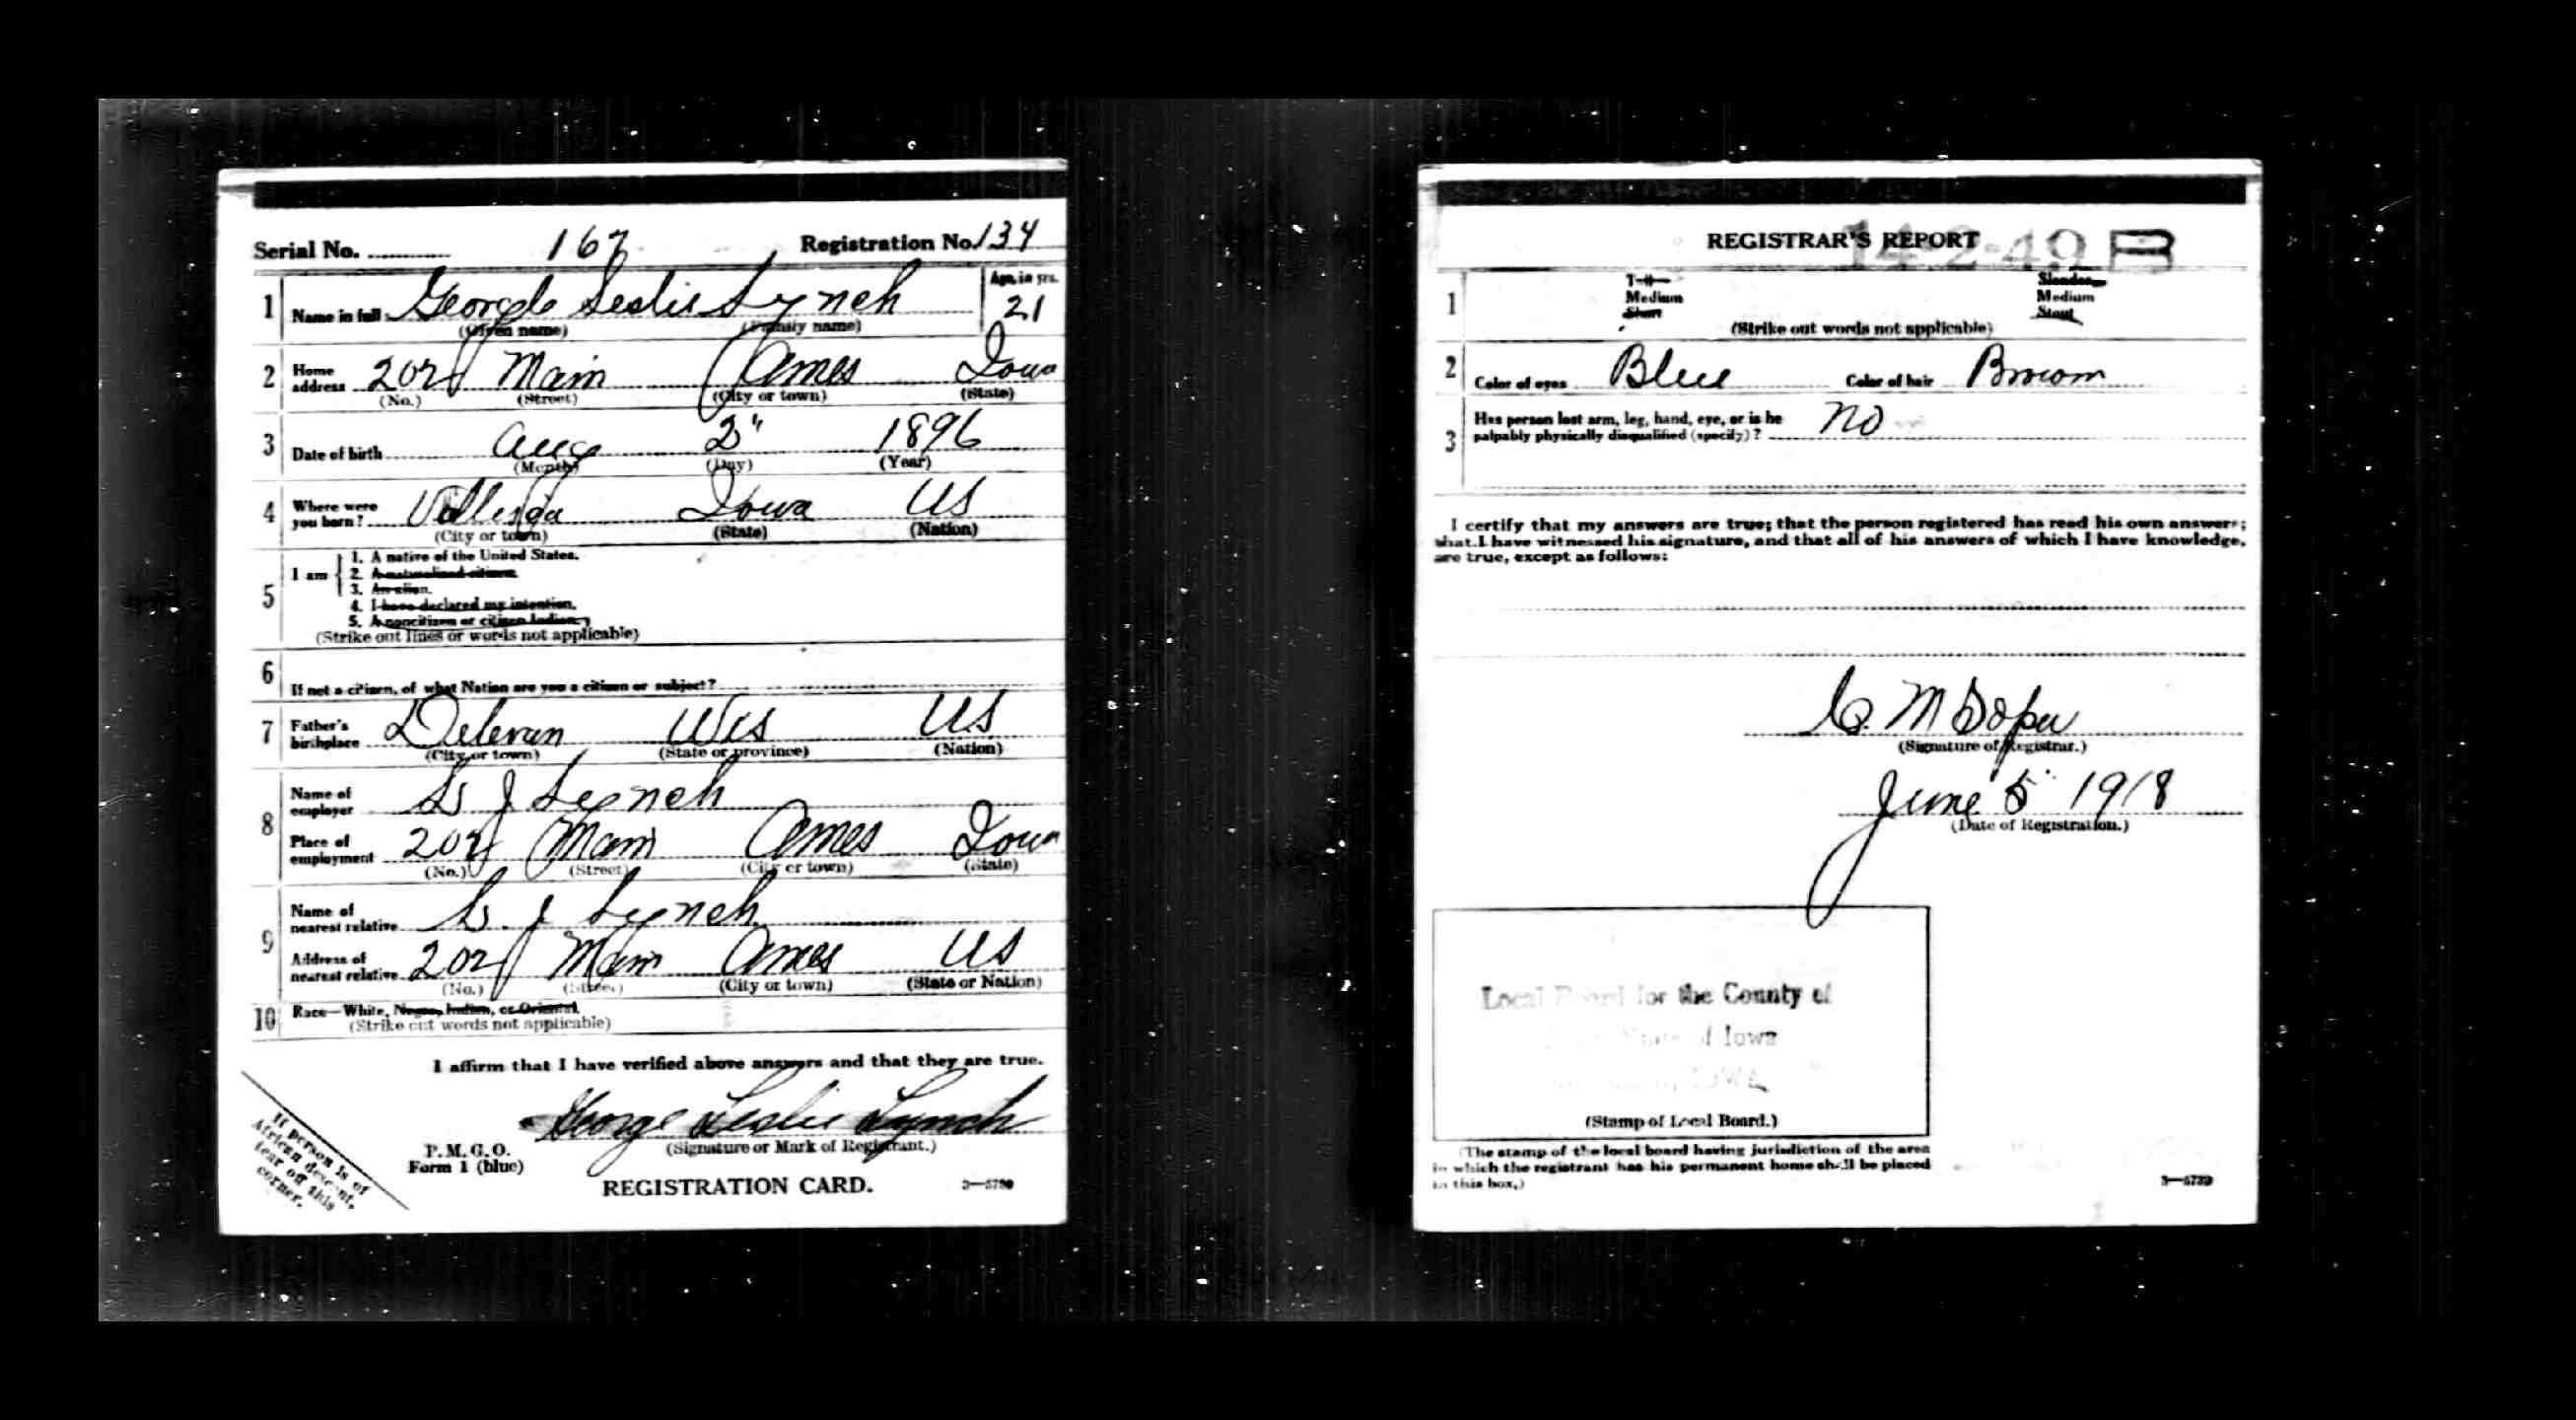 Serial No. 167 Registration No. 134
1 Name in full George Leslie Lynch Age, in yrs. 21
(Given name) (Family name)
2 Home address 202 Main Ames Iowa
(No.) (Street) (City or town) (State)
3 Date of birth Aug 2" 1896
(Month) (Day) (Year)
4 Where were you born? Iowa US
(City or town) (State) (Nation)
5 I am
1. A native of the United States.
2. A naturalized citizen.
3. An alien.
4. I have declared my intention.
5. A noncitizen or citizen Indian.
(Strike out lines or words not applicable)
6 If not a citizen, of what Nation are you a citizen or subject?
7 Father's birthplace Delevan Wis US
(City or town) (State or province) (Nation)
8 Name of employer J Lynch
Place of employment 202 Main Ames Iowa
(No.) (Street) (City or town) (State)
9 Name of nearest relative J Lynch
Address of nearest relative 202 Main Ames US
(No.) (Street) (City or town) (State or Nation)
10 Race—White, Negro, Indian, or Oriental.
(Strike out words not applicable)
I affirm that I have verified above answers and that they are true.
George Leslie Lynch
(Signature or Mark of Registrant.)
P. M. G. O.
Form 1 (blue)
REGISTRATION CARD.
If person is of
African descent,
tear off this
corner.
REGISTRAR'S REPORT 14-2-49 B
1 Tall Slender
Medium Medium
Short Stout
(Strike out words not applicable)
2 Color of eyes Blue Color of hair Brown
3 Has person lost arm, leg, hand, eye, or is he
palpably physically disqualified (specify)? No
I certify that my answers are true; that the person registered has read his own answers;
that I have witnessed his signature, and that all of his answers of which I have knowledge,
are true, except as follows:
M Soper
(Signature of Registrar.)
June 5 1918
(Date of Registration.)
Local Board for the County of
State of Iowa
IOWA
(Stamp of Local Board.)
(The stamp of the local board having jurisdiction of the area
in which the registrant has his permanent home shall be placed
in this box.)
3—6739